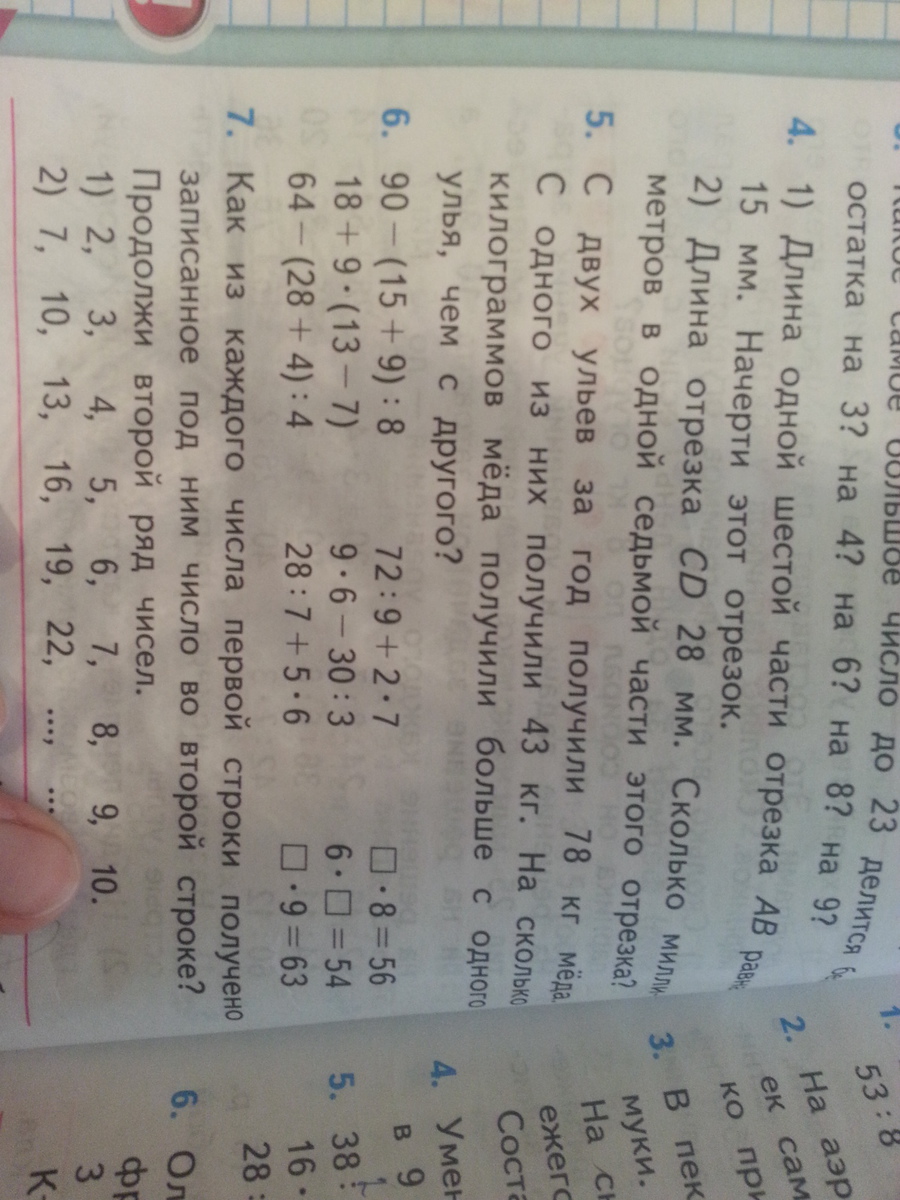 Какое самое большое число до 23 делится
остатка на 3? на 4? на 6? на 8? на 9?
4. 1) Длина одной шестой части отрезка AB
15 мм. Начерти этот отрезок.
2) Длина отрезка CD 28 мм. Сколько милли-
метров в одной седьмой части этого отрезка?
5. С двух ульев за год получили 78 кг мёда.
С одного из них получили 43 кг. На сколько
килограммов мёда получили больше с одного
улья, чем с другого?
6. 90 − (15 + 9) : 8 72 : 9 + 2 · 7 □ · 8 = 56
18 + 9 · (13 − 7) 9 · 6 − 30 : 3 6 · □ = 54
64 − (28 + 4) : 4 28 : 7 + 5 · 6 □ · 9 = 63
7. Как из каждого числа первой строки получено
записанное под ним число во второй строке?
Продолжи второй ряд чисел.
1) 2, 3, 4, 5, 6, 7, 8, 9, 10.
2) 7, 10, 13, 16, 19, 22, ..., ...
1. 53 : 8
2. На аэр
ек сам
ко при
3. В пек
муки.
На
ежего
Соста
4. Умен
в 9
5. 38
16 ·
28 :
6. Ол
фр
3
К